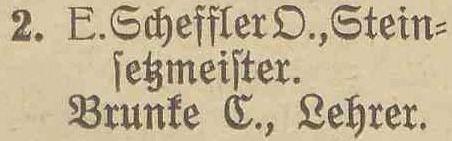 2. E. Scheffler O., Stein-
setzmeister.
Brunke C., Lehrer.